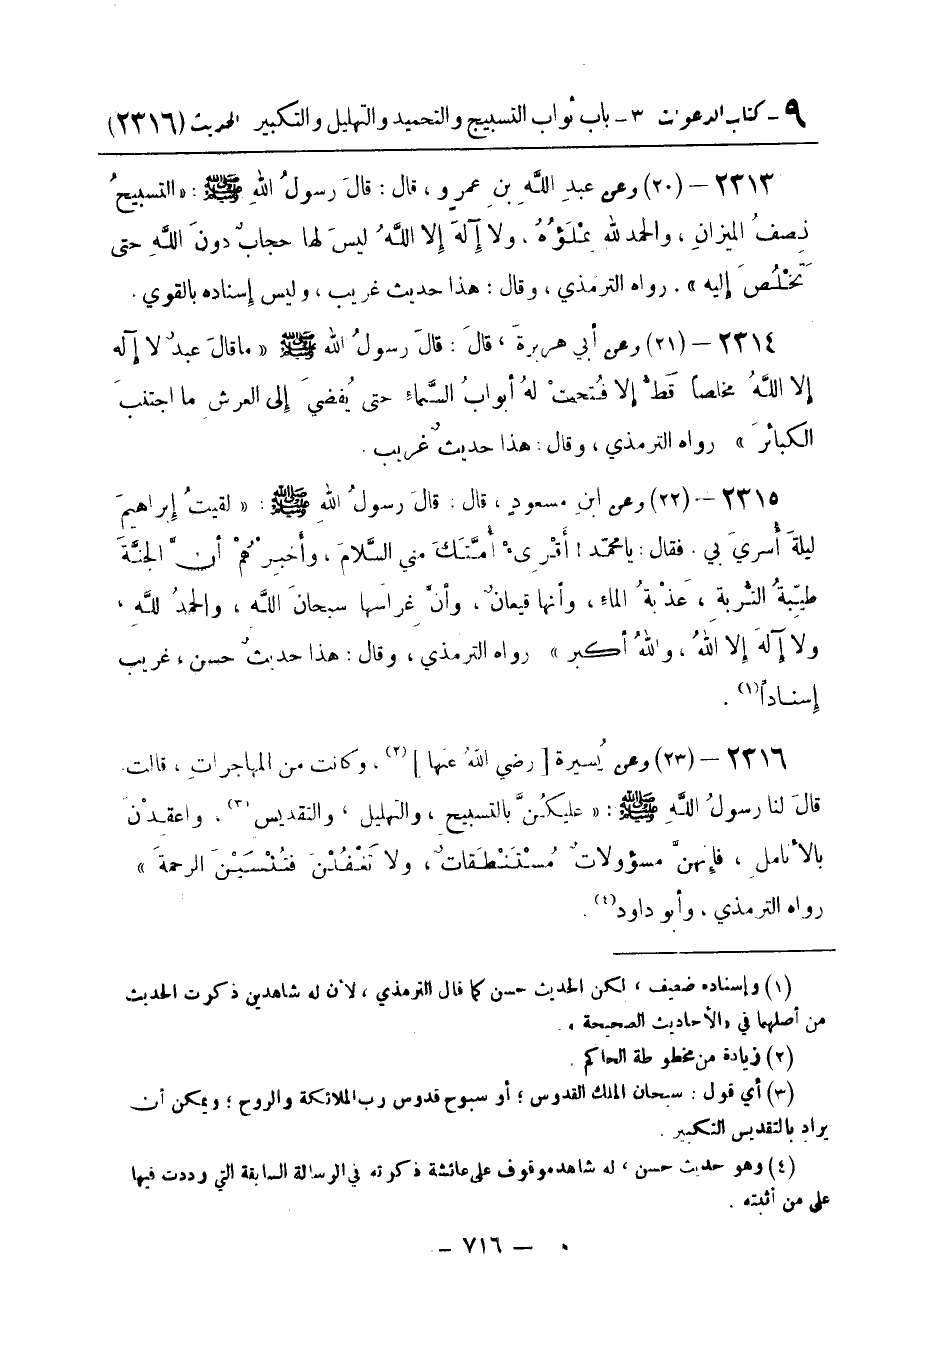 ٩ - كتاب الدعوات ٣ - باب ثواب التسبيح والتحميد والتهليل والتكبير الحديث (٢٣١٦)
٢٣١٣ - (٢٠) وعن عبدِ اللَّهِ بنِ عمرٍو ، قال : قالَ رسولُ اللهِ ﷺ : « التسبيحُ
نِصفُ الميزانِ ، والحمد لله يَمْلَؤُهُ . ولا إِلَهَ إلا اللَّهُ ليسَ لها حجابٌ دونَ اللَّهِ حتى
تَخْلُصَ إليه » . رواه الترمذي ، وقال : هذا حديث غريب ، وليس إسناده بالقوي .
٢٣١٤ - (٢١) وعن أبي هريرةَ ، قالَ : قالَ رسولُ الله ﷺ « ماقالَ عبدٌ لا إله
إلا اللَّهُ مخلصاً قطُّ إلا فُتحتْ لهُ أبوابُ السَّماءِ حتى يُفضيَ إلى العرشِ ما اجتنبَ
الكبائرَ » رواه الترمذي ، وقال : هذا حديثٌ غريب .
٢٣١٥ - (٢٢) وعن ابنِ مسعودٍ ، قال : قالَ رسولُ اللهِ ﷺ : « لقيتُ إبراهيمَ
ليلةَ أُسريَ بي . فقال : يامحمّد ! أَقْرِىءْ أُمَّتَكَ مني السلامَ ، وأخبِرْهُمْ أنَّ الجنَّةَ
طيّبةُ التُّربةِ ، عَذْبةُ الماءِ ، وأنها قيعانٌ ، وأنَّ غراسها سبحانَ اللَّهِ ، والحمدُ للَّهِ ،
ولا إِلَهَ إلا اللهُ ، واللهُ أكبر » رواه الترمذي ، وقال : هذا حديثٌ حسن ، غريب
إسناداً(١) .
٢٣١٦ - (٢٣) وعن يُسيرة [ رضي اللهُ عنها ](٢) . وكانت من المهاجراتِ ، قالت
قالَ لنا رسولُ اللَّهِ ﷺ : « عليكُنَّ بالتسبيحِ ، والتهليلِ ، والتقديسِ(٣) . واعقِدْنَ
بالأناملِ ، فإنهنَّ مسؤولاتٌ مُسْتَنْطَقاتٌ ، ولا تَغْفُلْنَ فَتُنْسَيْنَ الرحمةَ »
رواه الترمذي ، وأبو داود(٤) .
(١) وإسناده ضعيف ، لكن الحديث حسن كما قال الترمذي ، لأن له شاهدين ذكرت الحديث
من أصلهما في « الأحاديث الصحيحة » .
(٢) زيادة من مخطوطة الحاكم .
(٣) أي قول : سبحان الملك القدوس ؛ أو سبوح قدوس رب الملائكة والروح ؛ ويمكن أن
يراد بالتقديس التكبير .
(٤) وهو حديث حسن ، له شاهد موقوف على عائشة ذكرته في الرسالة السابقة التي رددت فيها
على من أثبته .
- ٧١٦ -